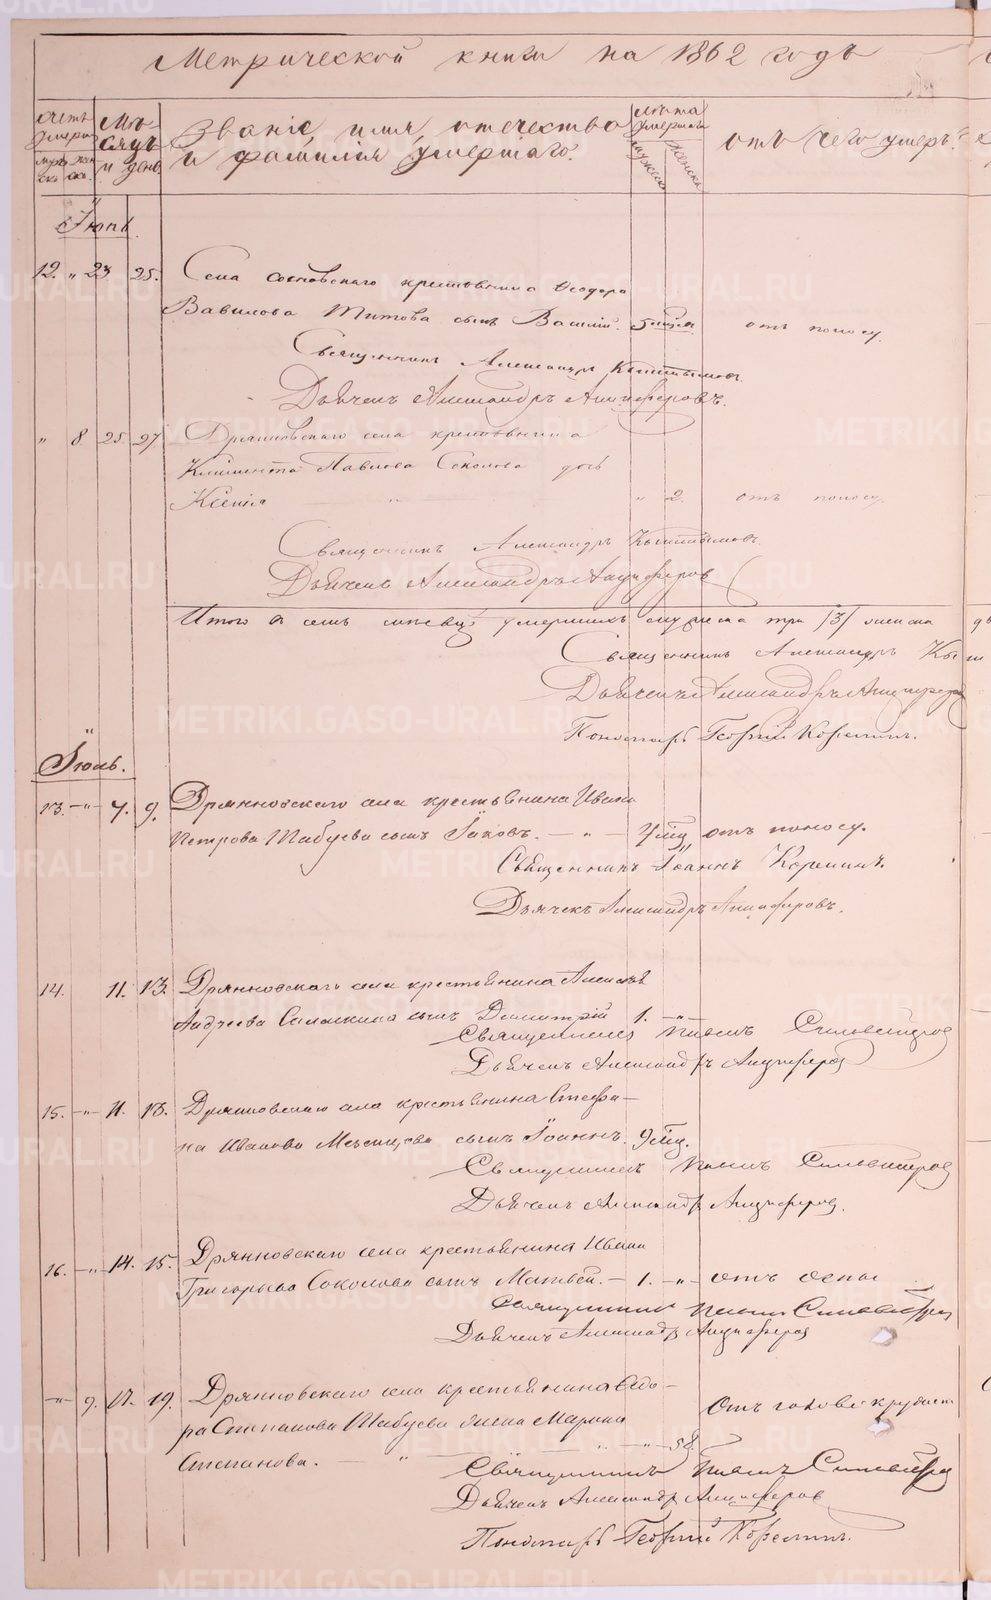 Метрической книги на 1862 годъ
счетъ умерш.
мужеска
женска
Мѣсяцъ и день
Званіе, имя, отечество
и фамилія умершаго.
лѣта умершаго
мужеска
женска
отъ чего умеръ?
Іюнь.
12. " 23 25. Села крестьянина Ѳеодора
Вавилова Титова сынъ Василій. 5 мѣс. отъ поносу.
Священникъ Александръ
Дьячекъ Александръ Анциферовъ.
" 8 25 27 Дрянновскаго села крестьянина
Климента Павлова Соколова дочь
Ксенія " " 2. отъ поносу.
Священникъ Александръ
Дьячекъ Александръ Анциферовъ
Итого въ семъ мѣсяцѣ умершихъ мужеска три /3/ женска
Священникъ Александръ
Дьячекъ Александръ Анциферовъ
Пономарь Георгій Корелинъ.
Іюль.
13. " 7. 9. Дрянновскаго села крестьянина Ивана
Петрова Табуева сынъ Іаковъ. " мѣс. отъ поносу.
Священникъ Іоаннъ
Дьячекъ Александръ Анциферовъ.
14. 11. 13. Дрянновскаго села крестьянина Алексѣя
Андреева сынъ Димитрій 1. "
Священникъ Павелъ Сильвестровъ
Дьячекъ Александръ Анциферовъ
15. " 11. 13. Дрянновскаго села крестьянина Стефа-
на Иванова сынъ Іоаннъ. 9 мѣс.
Священникъ Павелъ Сильвестровъ
Дьячекъ Александръ Анциферовъ.
16. " 14. 15. Дрянновскаго села крестьянина Ивана
Григорьева Соколова сынъ Матвей. 1. " отъ оспы
Священникъ Павелъ Сильвестровъ
Дьячекъ Александръ Анциферовъ
" 9. 17. 19. Дрянновскаго села крестьянина Сидо-
ра Степанова Табуева жена Марина
Степанова. " " 58. Отъ
Священникъ Павелъ Сильвестровъ
Дьячекъ Александръ Анциферовъ
Пономарь Георгій Корелинъ.
METRIKI.GASO-URAL.RU